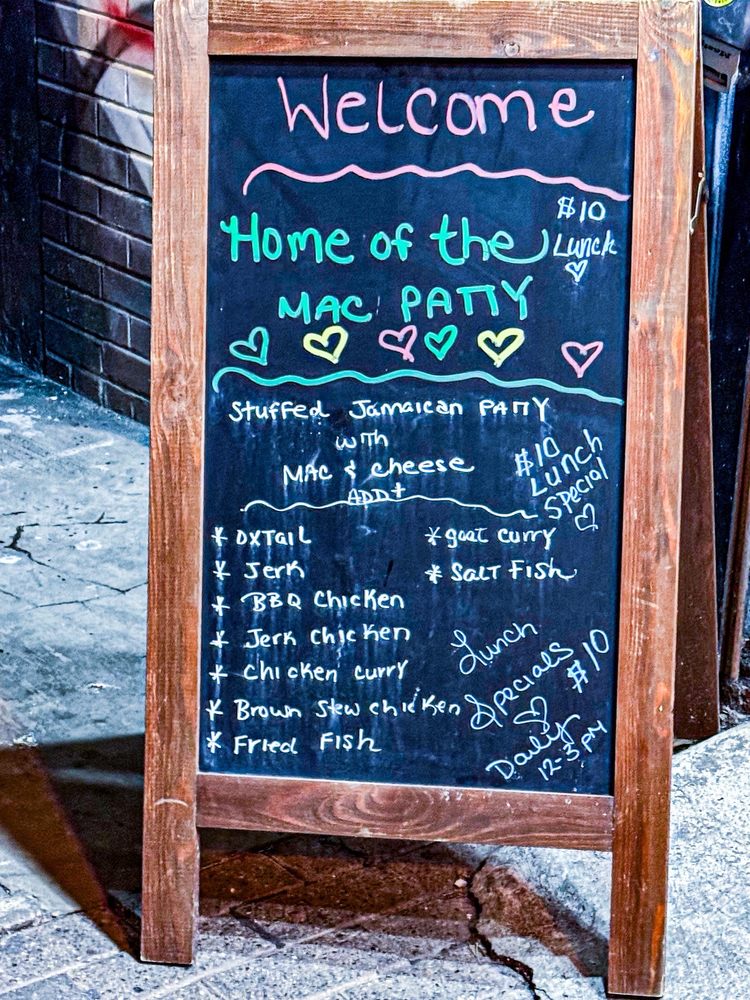 Welcome
$10
Lunch
Home of the
MAC PATTY
Stuffed Jamaican PATTY
with
MAC & cheese
ADD+
$10
Lunch
Special
* OXTail
* Jerk
* BBQ Chicken
* Jerk Chicken
* Chicken curry
* Brown Stew chicken
* Fried Fish
* goat curry
* Salt Fish
Lunch
Specials
$10
Daily
12-3pm